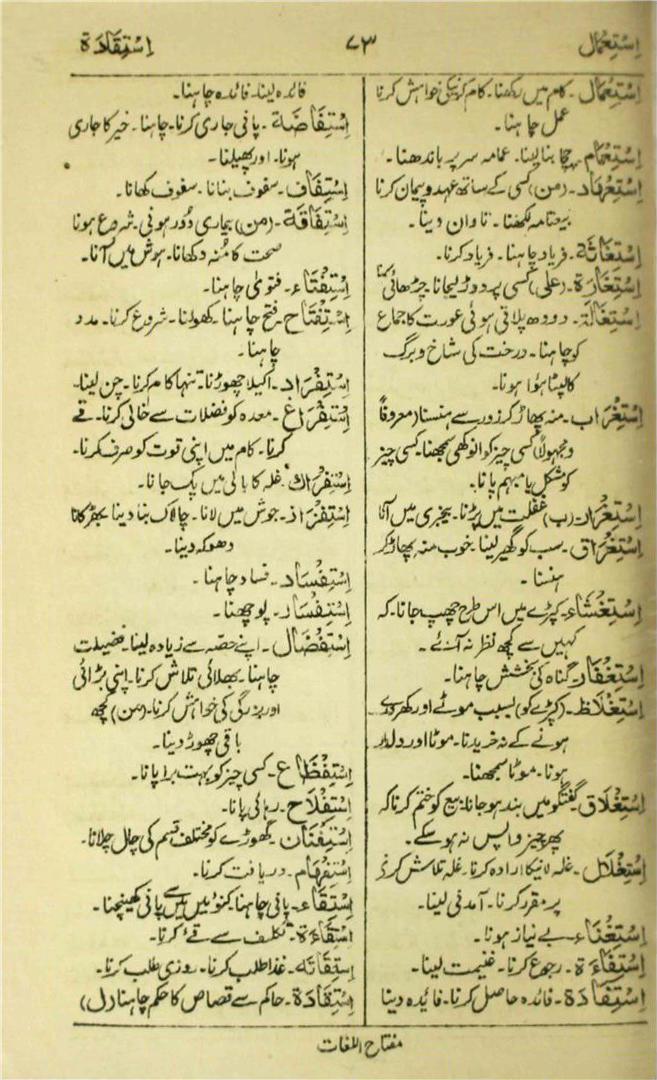 اِسْتِعْمَال
۷۳
اِسْتِقَادَة
اِسْتِعْمَال۔ کام میں رکھنا۔ کام کرنیکی خواہش کرنا
عمل چاہنا۔
اِسْتِعْمَام بنالینا۔ عمامہ سر پہ باندھنا۔
اِسْتِعْهَاد۔ (من) کسی کے ساتھ عہد و پیمان کرنا
بیعنامہ لکھنا۔ تاوان دینا۔
اِسْتِغَاثَة۔ فریاد چاہنا۔ فریاد کرنا۔
اِسْتِغَارَة۔ (علی) کسی پر دوڑ لیجانا۔ چڑھائی کرنا
اِسْتِغَالَة۔ دودھ پلاتی ہوئی عورت کا جماع
کو چاہنا۔ درخت کی شاخ و برگ
کا لپٹا ہوا ہونا۔
اِسْتِغْرَاب۔ منہ پھاڑ کر زور سے ہنسنا (معروفاً
و مجہولاً) کسی چیز کو انوکھی سمجھنا۔ کسی چیز
کو مشکل یا مبہم پانا۔
اِسْتِغْرَار۔ (ب) غفلت میں پڑنا۔ بیخبری میں آنا
اِسْتِغْرَاق۔ سب کو گھیر لینا۔ خوب منہ پھاڑ کر
ہنسنا۔
اِسْتِغْشَاء۔ کپڑے میں اس طرح چھپ جانا۔ کہ
کہیں سے کچھ نظر نہ آئے۔
اِسْتِغْفَار۔ گناہ کی بخشش چاہنا۔
اِسْتِغْلَاظ۔ (کپڑے کو) بسبب موٹے اور کھردرے
ہونے کے نہ خریدنا۔ موٹا اور دلدار
ہونا۔ موٹا سمجھنا۔
اِسْتِغْلَاق۔ گفتگو میں بند ہو جانا۔ بیع کو ختم کرنا کہ
پھر چیز واپس نہ ہو سکے۔
اِسْتِغْلَال۔ غلہ لانیکا ارادہ کرنا۔ غلہ تلاش کرنے
پر مقرر کرنا۔ آمدنی لینا۔
اِسْتِغْنَاء۔ بے نیاز ہونا۔
اِسْتِفَاءَة۔ رجوع کرنا۔ غنیمت لینا۔
اِسْتِفَادَة۔ فائدہ حاصل کرنا۔ فائیدہ دینا
فائدہ لینا۔ فائدہ چاہنا۔
اِسْتِفَاضَة۔ پانی جاری کرنا۔ چاہنا۔ خیر کا جاری
ہونا۔ اور پھیلنا۔
اِسْتِفَاف۔ سفوف بنانا۔ سفوف کھانا۔
اِسْتِفَاقَة۔ (من) بیماری دُور ہونی۔ شروع ہونا
صحت کا مُنہ دکھانا۔ ہوش میں آنا۔
اِسْتِفْتَاء۔ فتویٰ چاہنا۔
اِسْتِفْتَاح۔ فتح چاہنا۔ کھولنا۔ شروع کرنا۔ مدد
چاہنا۔
اِسْتِفْرَاد۔ اکیلا چھوڑنا۔ تنہا کام کرنا۔ چن لینا۔
اِسْتِفْرَاغ۔ معدہ کو فضلات سے خالی کرنا۔ قے
کرنا۔ کام میں اپنی قوت کو صرف کرنا۔
اِسْتِفْرَاك۔ غلہ کا بالی میں پک جانا۔
اِسْتِفْزَاز۔ جوش میں لانا۔ چالاک بنا دینا۔ بھڑکانا
دھوکہ دینا۔
اِسْتِفْسَاد۔ فساد چاہنا۔
اِسْتِفْسَار۔ پوچھنا۔
اِسْتِفْضَال۔ اپنے حصہ سے زیادہ لینا۔ فضیلت
چاہنا۔ بھلائی تلاش کرنا۔ اپنی بڑائی
اور بزرگی کی خواہش کرنا۔ (من) کچھ
باقی چھوڑ دینا۔
اِسْتِفْظَاع۔ کسی چیز کو بہت برا پانا۔
اِسْتِفْلَاح۔ رہائی پانا۔
اِسْتِفْنَان۔ گھوڑے کو مختلف قسم کی چال چلانا۔
اِسْتِفْهَام۔ دریافت کرنا۔
اِسْتِقَاء۔ پانی چاہنا۔ کنوئیں میں سے پانی کھینچنا۔
اِسْتِقَاءَة۔ تکلف سے قے کرنا۔
اِسْتِقَاتَة۔ غذا طلب کرنا۔ روزی طلب کرنا۔
اِسْتِقَادَة۔ حاکم سے قصاص کا حکم چاہنا (ل)
مفتاح اللغات